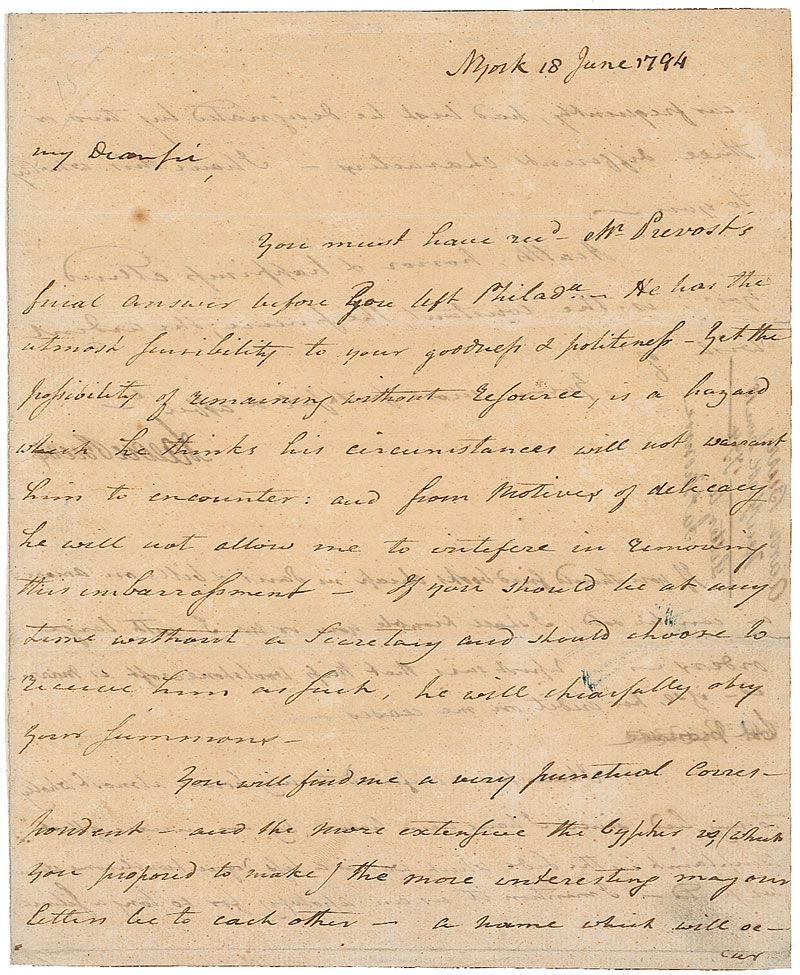 NYork 18 June 1794
my Dear sir,
You must have recd. Mr Prevost's
final answer before You left Philada. — He has the
utmost sensibility to your goodness & politeness — Yet the
possibility of remaining without resource, is a hazard
which he thinks his circumstances will not warrant
him to encounter: and from Motives of delicacy
he will not allow me to interfere in removing
this embarrassment — If you should be at any
time without a Secretary and should choose to
receive him as such, he will chearfully obey
your summons —
You will find me a very punctual Corres-
pondent — and the more extensive the Cypher is, (which
you proposed to make) the more interesting may our
letters be to each other — a name which will oc-
cur